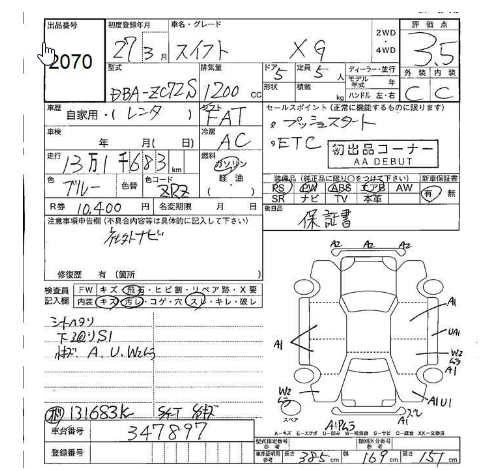 出品番号 初度登録年月 車名・グレード 2WD 評価点
2070 27年3月 スイフト XG 4WD 3.5
型式 排気量 ドア 5 定員 5人 ディーラー・並行 外装 内装
DBA-ZC72S 1200cc 形状 積載 kg モデル年式 年 ハンドル 左・右 C C
車歴 シフト セールスポイント(正常に機能するものに限ります)
自家用・(レンタ) FAT プッシュスタート
車検 冷房 ETC
年 月(日) AC 初出品コーナー
走行 燃料 AA DEBUT
13万1千683km ガソリン
色 色替 色コード 軽・油 装備品(純正品に限り○をつけて下さい) 新車保証書
ブルー ZRZ ( ) PS PW ABS エアB AW 有 無
SR ナビ TV 本革
R券 10,400円 名変期限 月 日 後日品
注意事項申告欄(不具合内容等は具体的に記入して下さい) 保証書
修復歴 有(箇所 )
検査員 FW キズ・飛石・ヒビ割・リペア跡・X要
記入欄 内装 キズ・汚レ・コゲ・穴・スレ・キレ・破レ
シートヘタリ
下廻りS1
A.U.W
A2 A2
A1
UA1
A1 W2
A1
W2
A1U1
スペア A1
A-キズ E-エクボ U-凹み
131683K
車台番号 347897
登録番号
型式指定番号 類別区分番号
長さ 385cm 幅 169cm 高さ 151cm